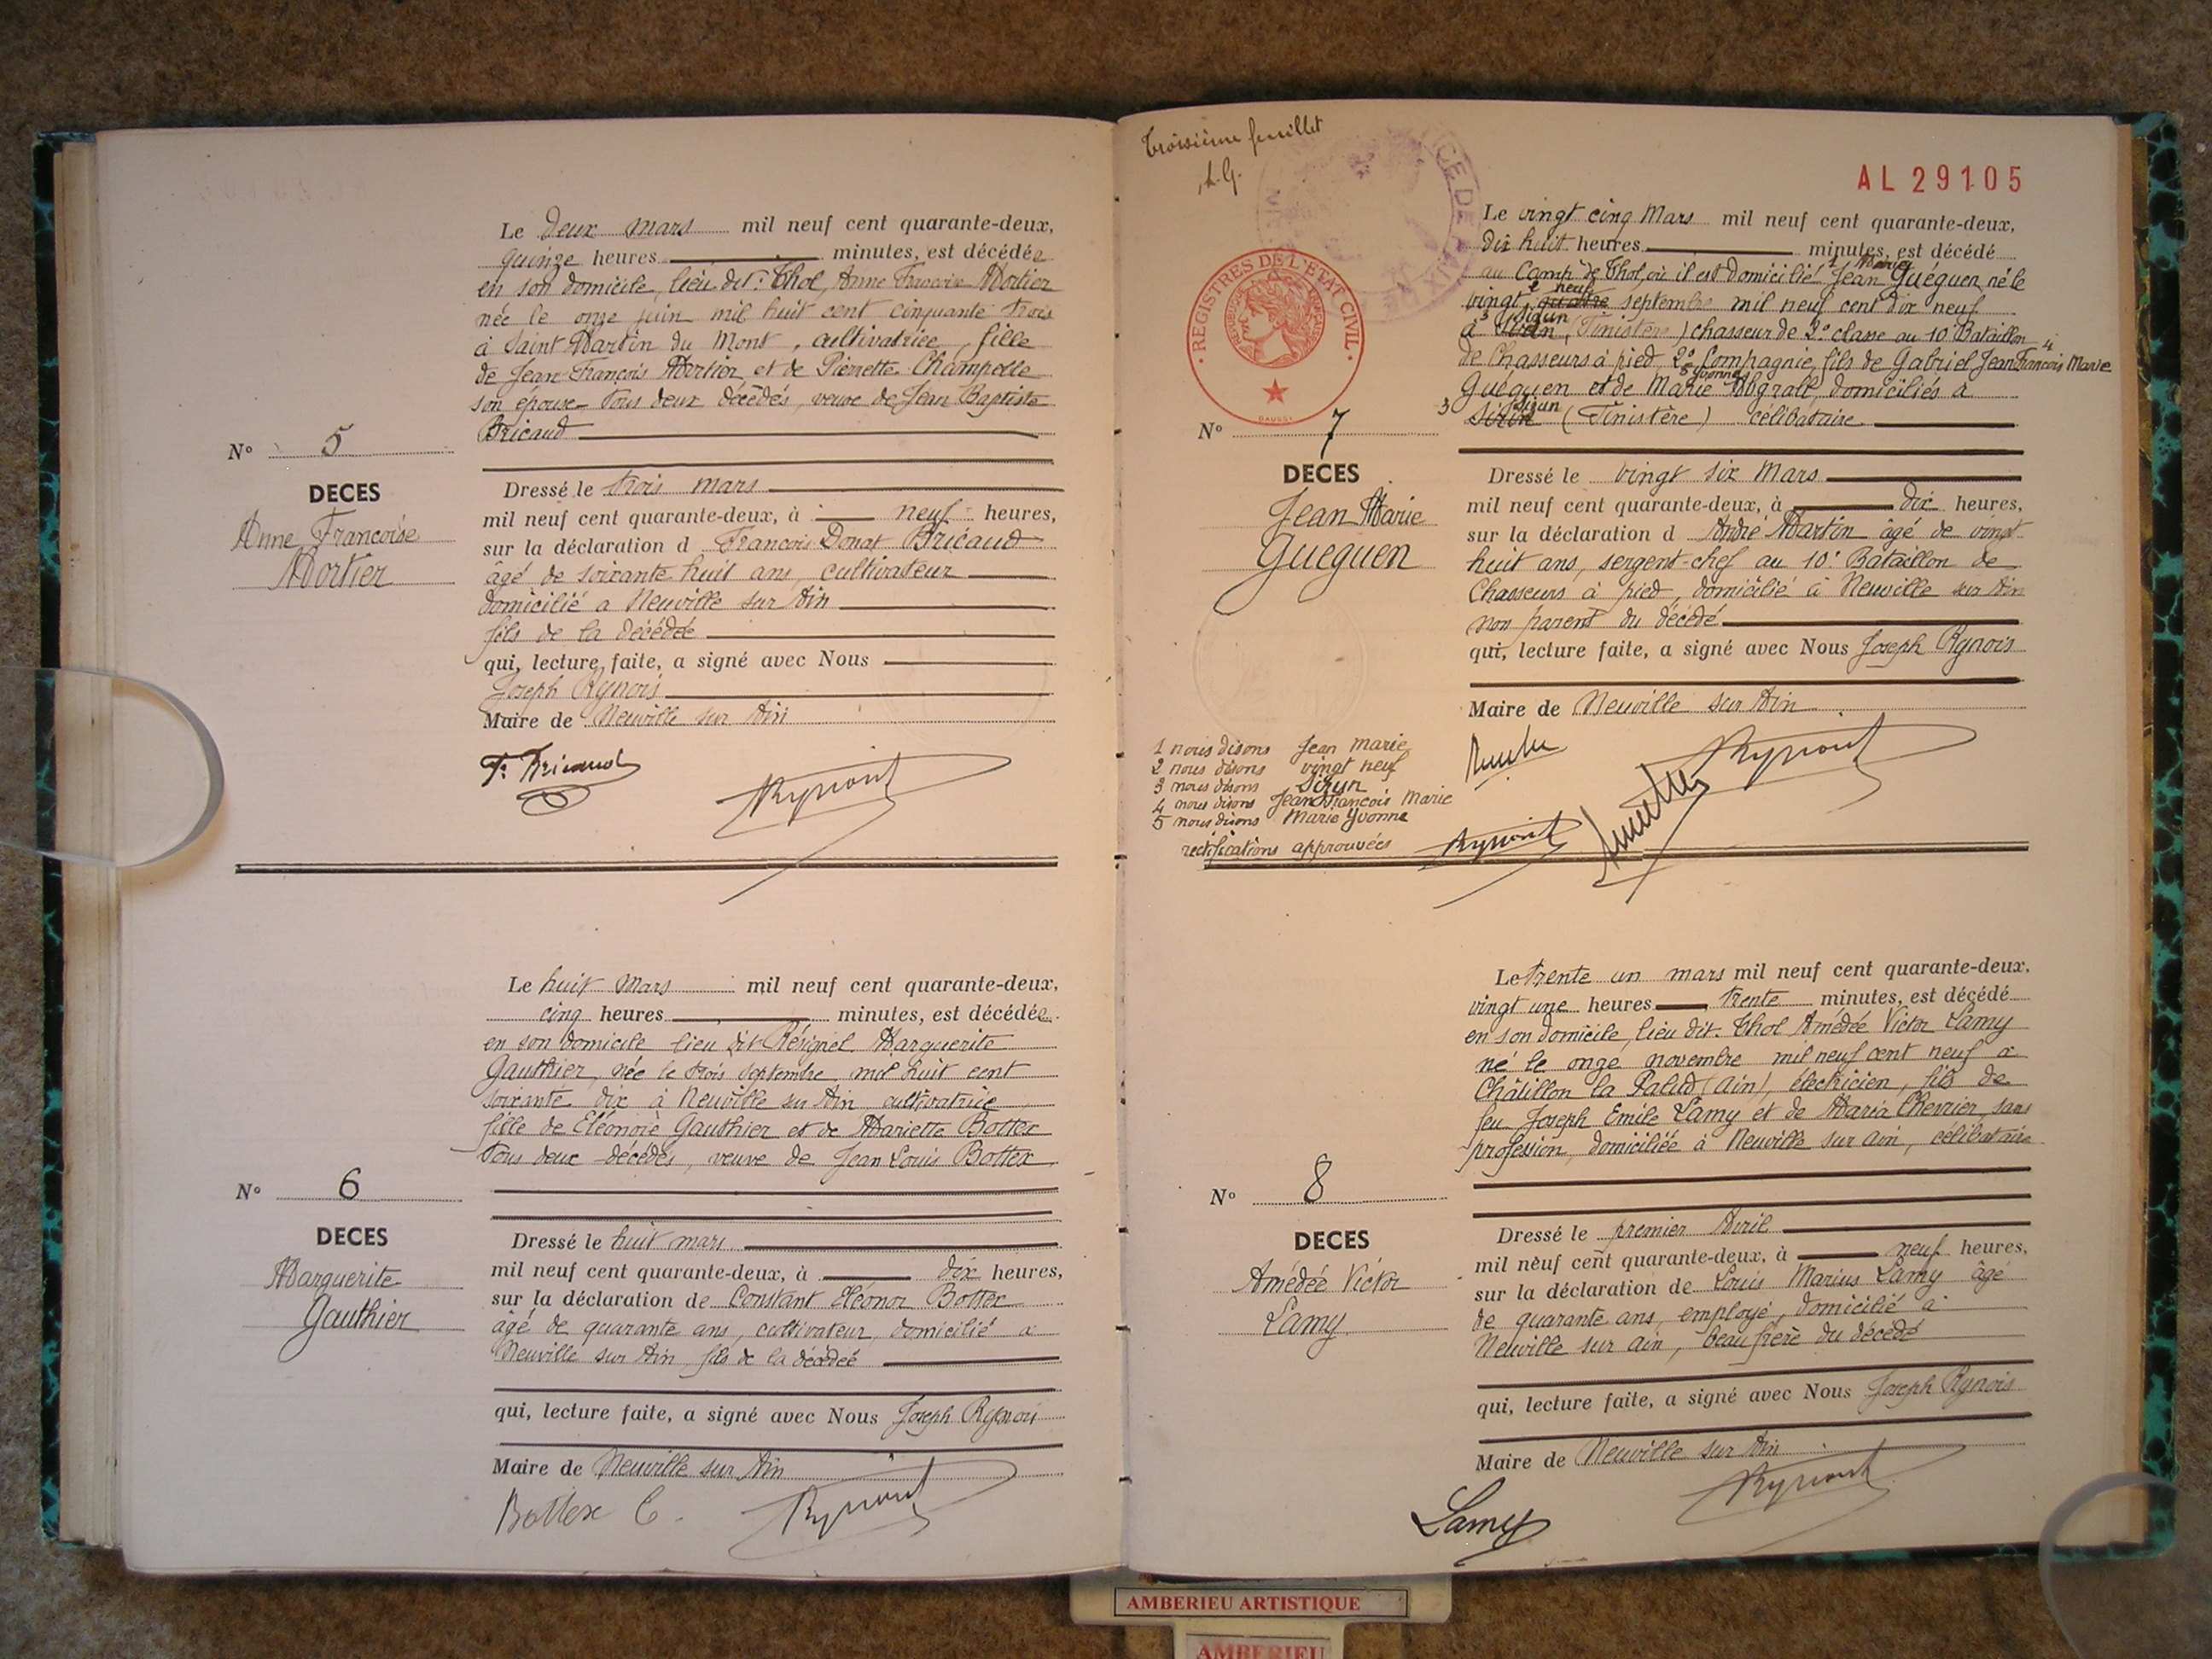 Le deux mars mil neuf cent quarante-deux,
quinze heures minutes, est décédée
en son domicile, lieu dit : Thol, Anne Francoise Mortier
née le onze juin mil huit cent cinquante trois
à Saint Martin du Mont, cultivatrice, fille
de Jean François Mortier et de Pierrette Champelle
son épouse tous deux décédés, veuve de Jean Baptiste
Bricaud
N° 5
DECES
Anne Francoise
Mortier
Dressé le trois mars
mil neuf cent quarante-deux, à neuf heures,
sur la déclaration d Francois Donat Bricaud
âgé de soixante huit ans, cultivateur
domicilié a Neuville sur Ain
fils de la décédée
qui, lecture faite, a signé avec Nous
Joseph Rynois
Maire de Neuville sur Ain
F. Bricaud
Le huit Mars mil neuf cent quarante-deux,
cinq heures minutes, est décédée
en son domicile lieu dit Résignel Marguerite
Gauthier, née le trois septembre mil huit cent
soixante dix à Neuville sur Ain cultivatrice
fille de Eléonore Gauthier et de Mariette Bottex
tous deux décédés, veuve de Jean Louis Bottex
N° 6
DECES
Marguerite
Gauthier
Dressé le huit mars
mil neuf cent quarante-deux, à dix heures,
sur la déclaration de Constant Eléonor Bottex
âgé de quarante ans, cultivateur, domicilié a
Neuville sur Ain, fils de la décédée
qui, lecture faite, a signé avec Nous Joseph Rynois
Maire de Neuville sur Ain
Bottex C.
Troisième feuillet
AL 29105
REGISTRES DE L'ETAT CIVIL
Le vingt cinq Mars mil neuf cent quarante-deux,
dix huit heures minutes, est décédé
au Camp de Thol, où il est domicilié 1 Jean Marie Guéguen, né le
vingt 2 quatre neuf septembre mil neuf cent dix neuf
à 3 Sizun (Finistère) chasseur de 2e classe au 10 Bataillon
de Chasseurs à pied, 2e Compagnie, fils de Gabriel Jean François Marie 4
Guéguen et de Marie 5 Yvonne Abgrall, domiciliés à
3 Sizun (Finistère) célibataire
N° 7
DECES
Jean Marie
Gueguen
Dressé le vingt six Mars
mil neuf cent quarante-deux, à dix heures,
sur la déclaration d André Martin âgé de vingt
huit ans, sergent-chef au 10e Bataillon de
Chasseurs à pied, domicilié à Neuville sur Ain
non parent du décédé
qui, lecture faite, a signé avec Nous Joseph Rynois
Maire de Neuville sur Ain
1 nous disons Jean marie
2 nous disons vingt neuf
3 nous disons Sizun
4 nous disons Jean François Marie
5 nous disons Marie Yvonne
rectifications approuvées
Le trente un mars mil neuf cent quarante-deux,
vingt une heures trente minutes, est décédé
en son domicile, lieu dit Thol Amédée Victor Lamy
né le onze novembre mil neuf cent neuf a
Châtillon la Palud (Ain), électricien, fils de
feu Joseph Emile Lamy et de Maria Chevrier, sans
profession, domiciliée à Neuville sur Ain, célibataire
N° 8
DECES
Amédée Victor
Lamy
Dressé le premier Avril
mil neuf cent quarante-deux, à neuf heures,
sur la déclaration de Louis Marius Lamy âgé
de quarante ans, employé, domicilié à
Neuville sur Ain, beau frère du décédé
qui, lecture faite, a signé avec Nous Joseph Rynois
Maire de Neuville sur Ain
Lamy
AMBERIEU ARTISTIQUE
AMBERIEU